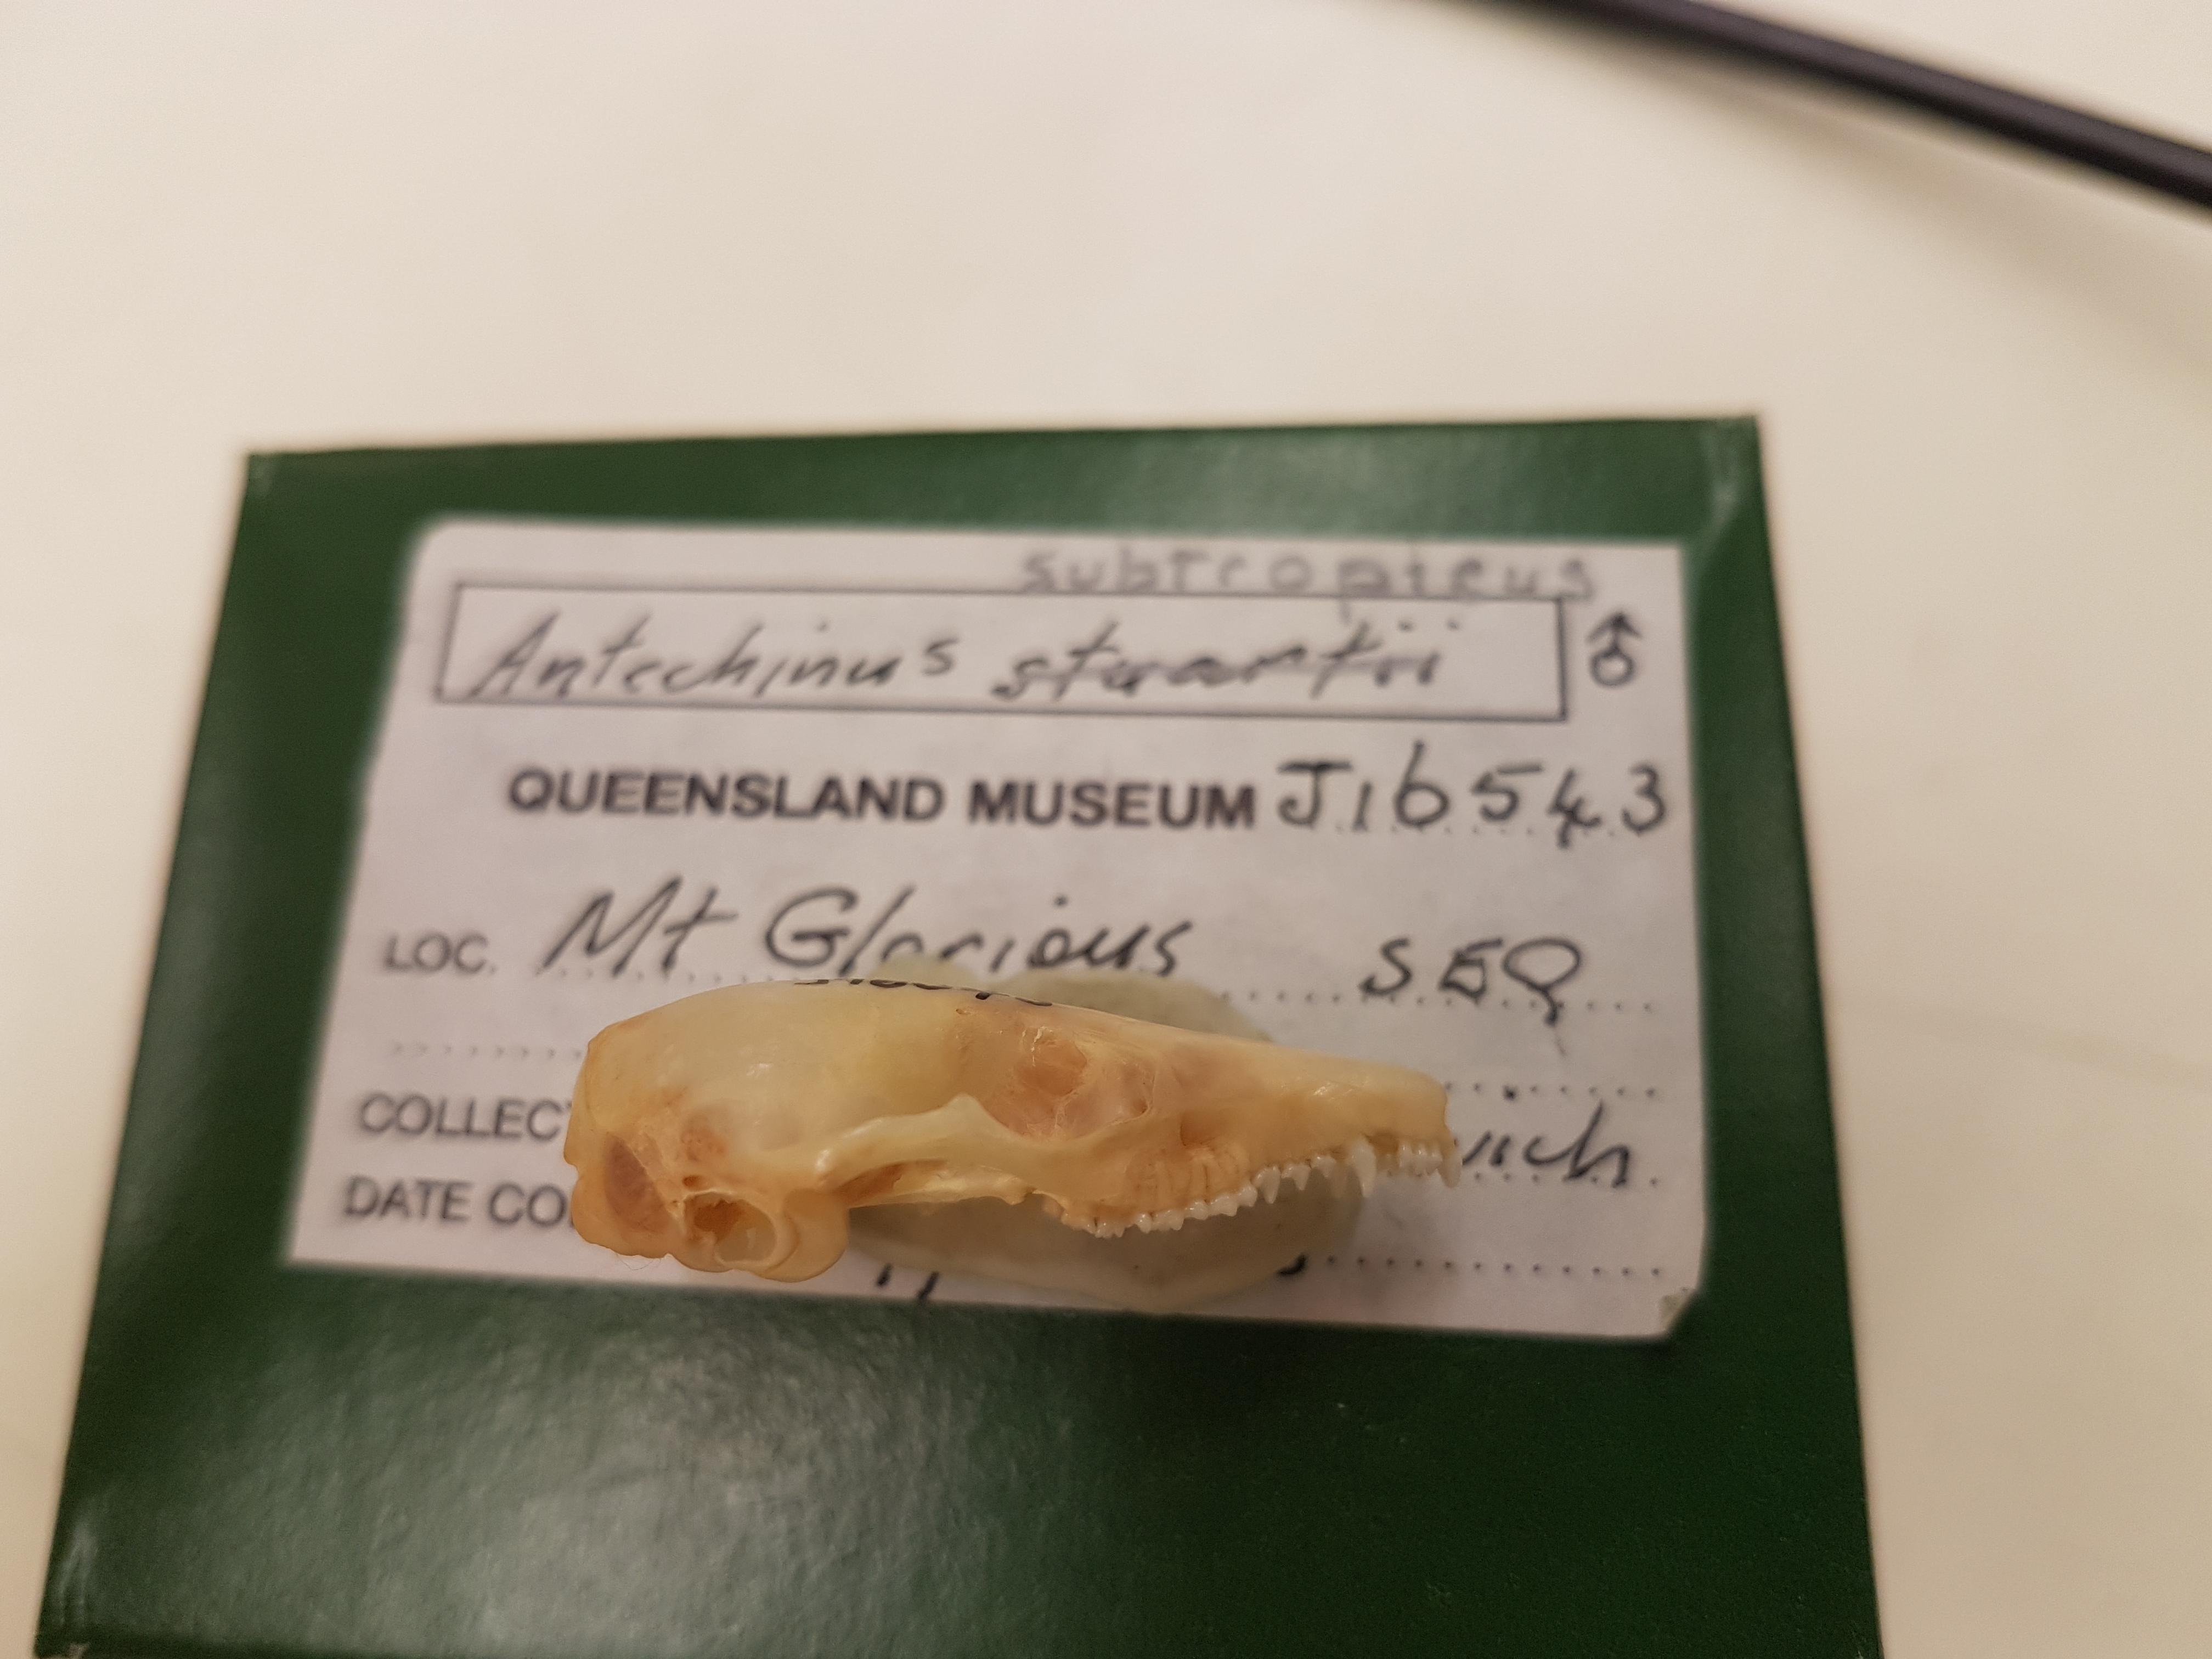 subtropicus
Antechinus stuartii ♂
QUEENSLAND MUSEUM J16543
LOC. Mt Glorious SEQ
COLLEC
DATE CO